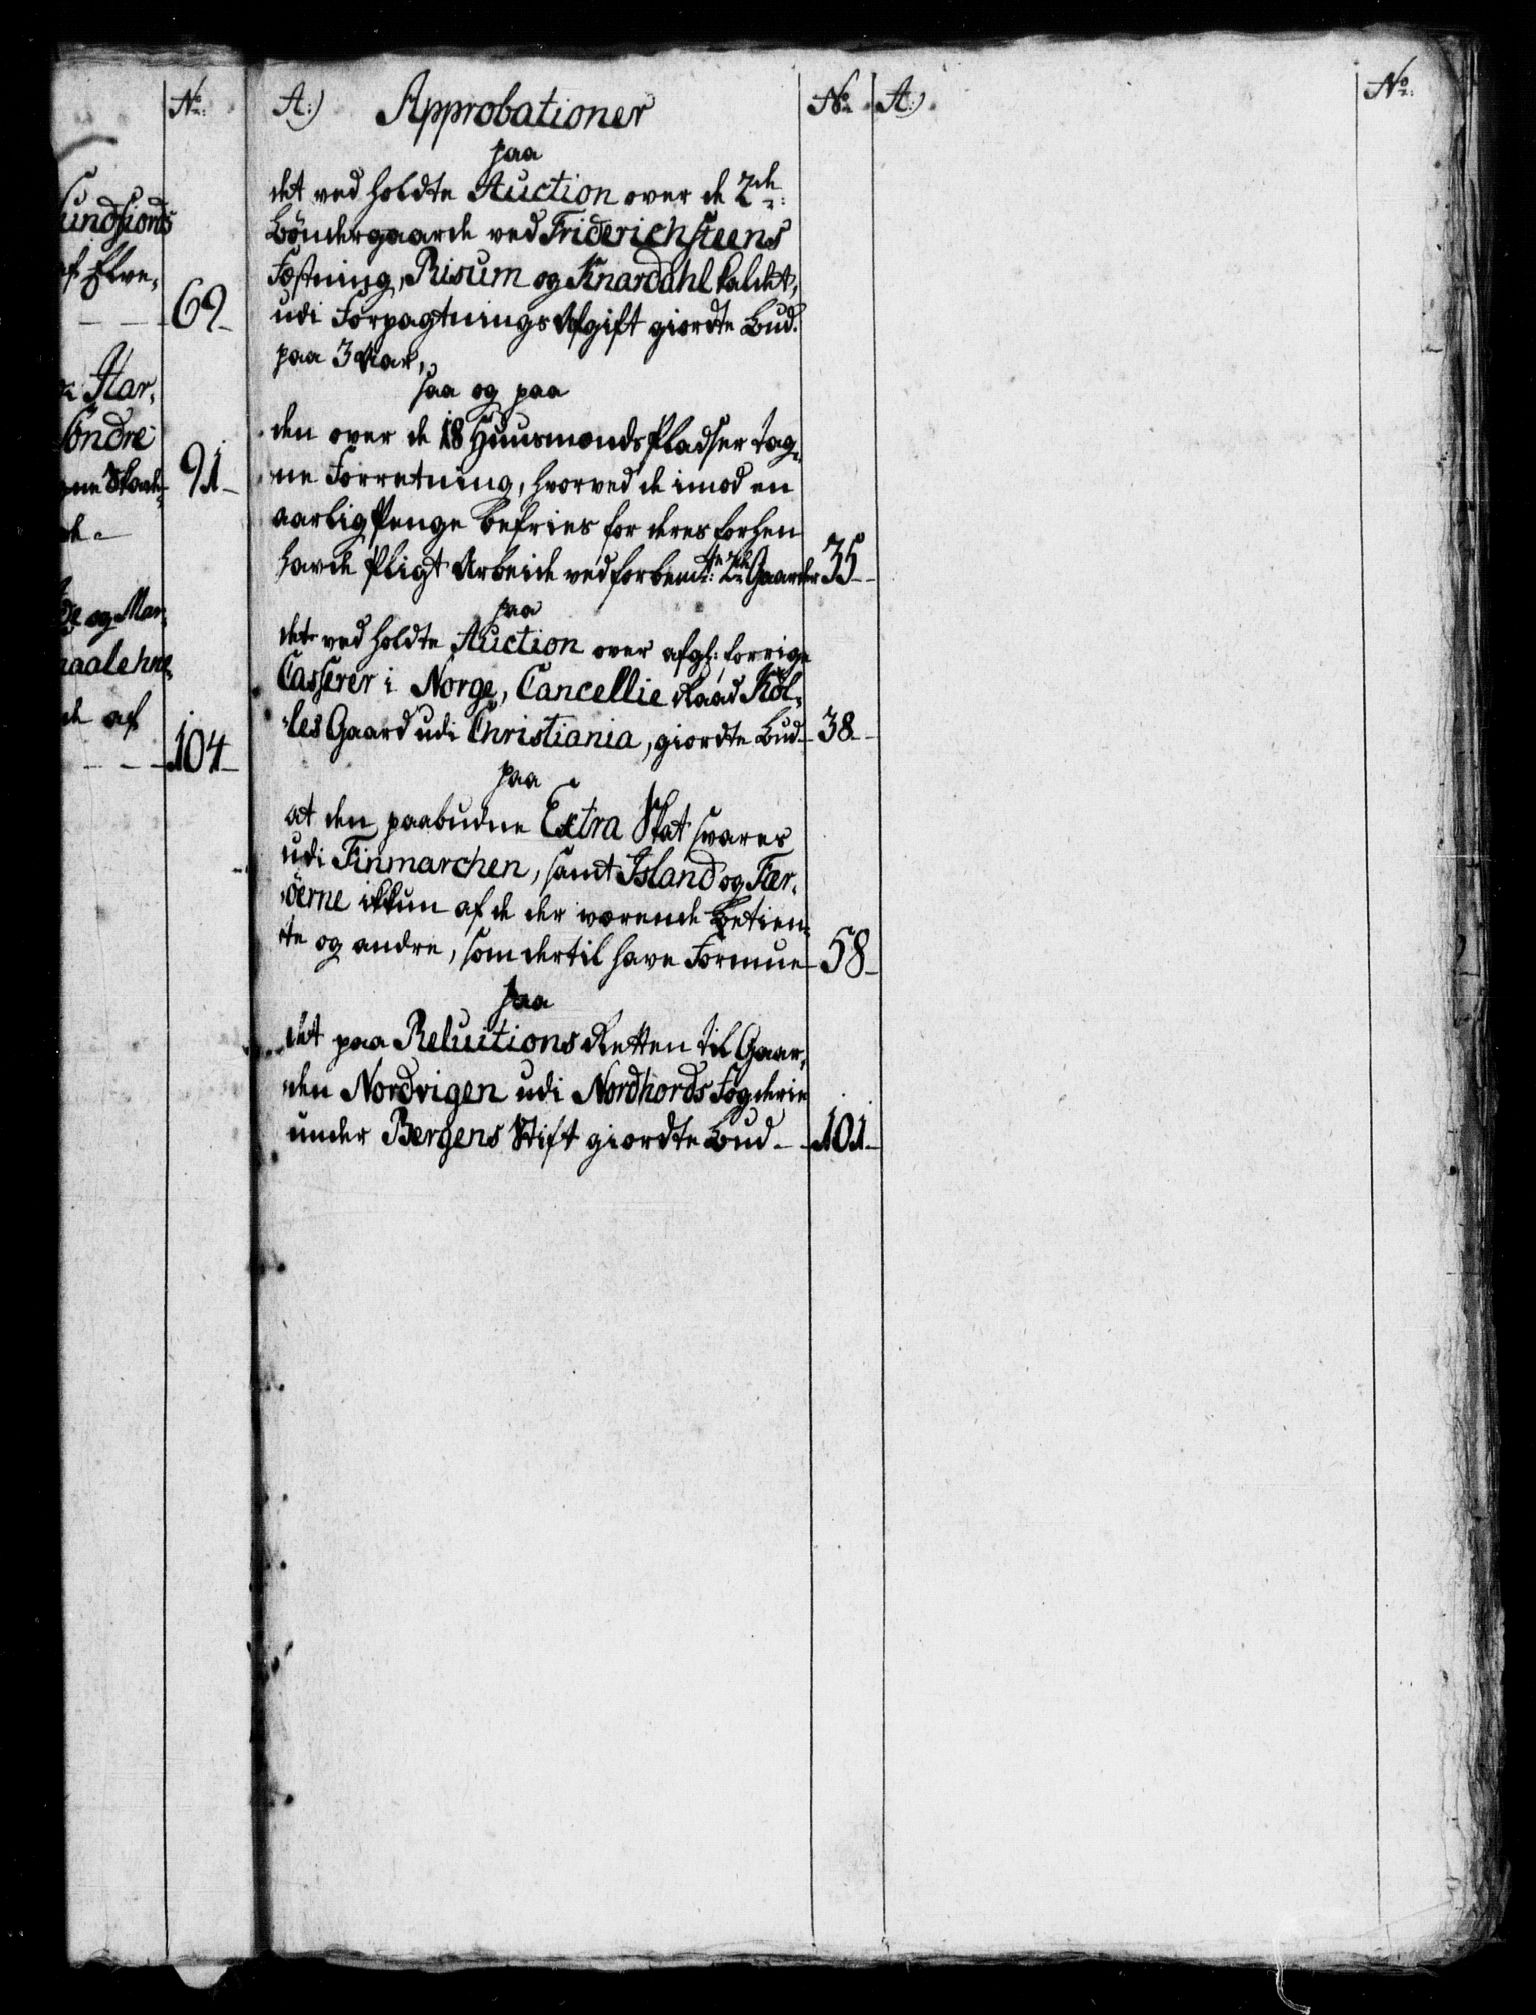 No:
Sundfiords
af Elve,
69
Har,
Söndre
91
og Mar,
af
104
A:) Approbationer
No: A:) No:
paa
det ved holdte Auction over de 2de:
Böndergaarde ved Friderichsteens
Fæstning, Risum og Knardahl kaldet,
udi ForpagtningsAfgift giordte Bud.
paa 3 Aar,
saa og paa
den over de 18 HuusmondsPladser tag,
ne Forretning, hvorved de imod en
aarlig Penge befries for deres forhen
havde Pligt Arbeide ved forbemte: 2de Gaarder 35
paa
det ved holdte Auction over afg: forrige
Casserer i Norge, Cancellie Raad Köl,
les Gaard udi Christiania, giordte Bud 38
paa
at den paabudne Extra Skat svares
udi Finmarchen, samt Island og Fær,
öerne ikkun af de der værende Betien,
te og andre, som dertil have Formue 58
paa
det paa Reluitions Retten til Gaar,
den Nordvigen udi Nordhords Fogderie
under Bergens Stift giordte Bud 101